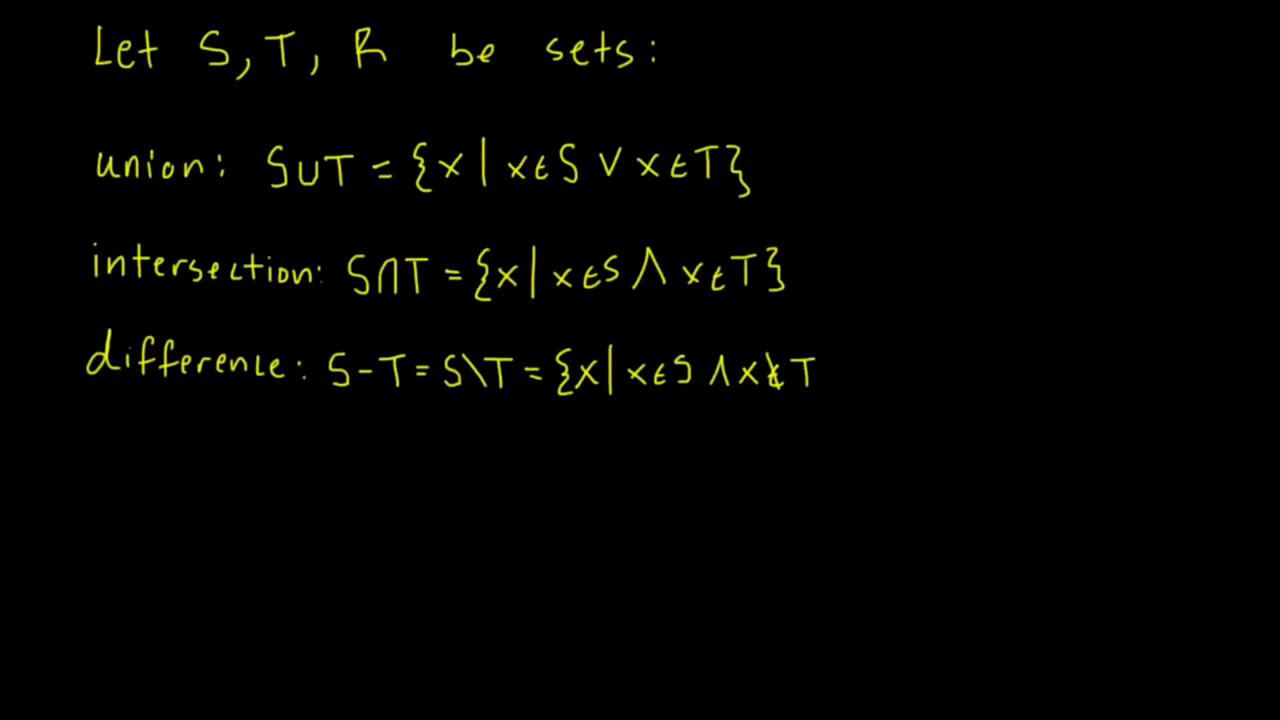 Let S, T, R be sets:
union: S∪T = {x | x∈S ∨ x∈T}
intersection: S∩T = {x | x∈S ∧ x∈T}
difference: S-T = S\T = {x | x∈S ∧ x∉T